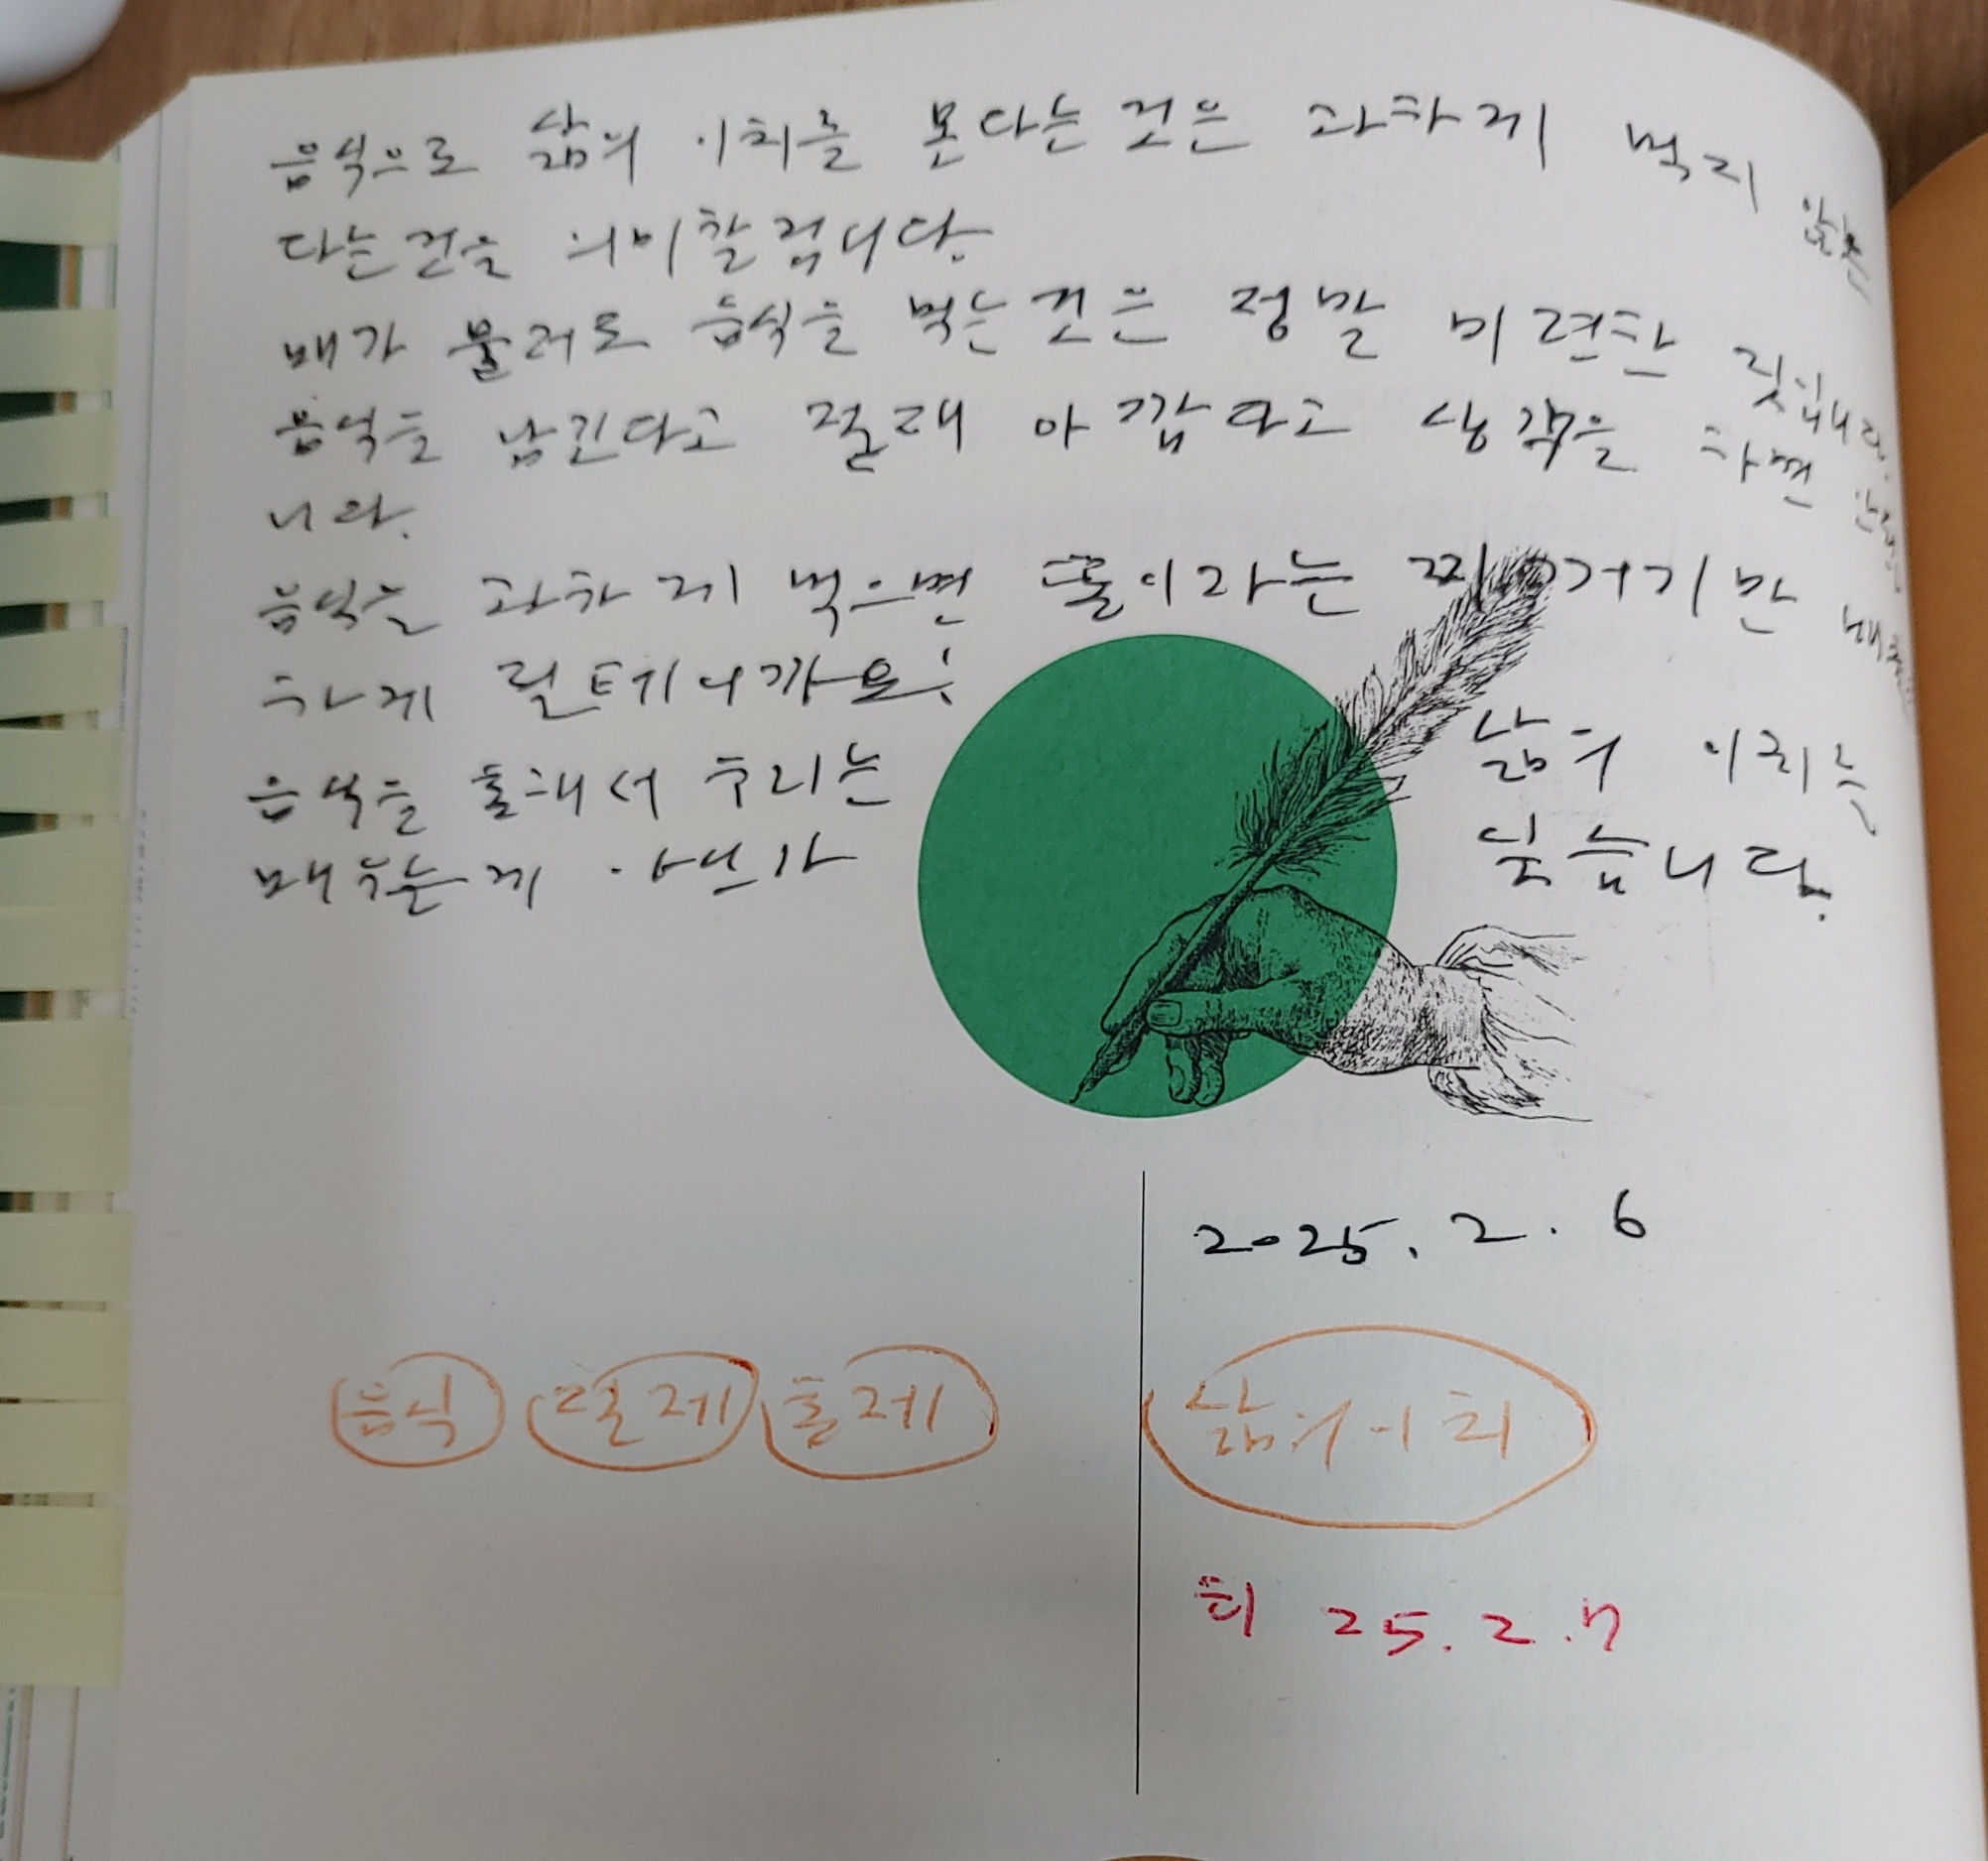 음식으로 삶의 이치를 본다는것은 과하게 먹지 않는
다는것을 의미할겁니다.
배가 불러도 음식을 먹는것은 정말 미련한 짓입니다.
음식을 남긴다고 절대 아깝다고 생각을 하면
니다.
음식을 과하게 먹으면 똥이라는 찌꺼기만
하게 될테니까요!
음식을 통해서 우리는 삶의 이치는
배우는게 습니다.
2025. 2. 6
음식 절제 통제 삶의이치
희 25. 2. 7